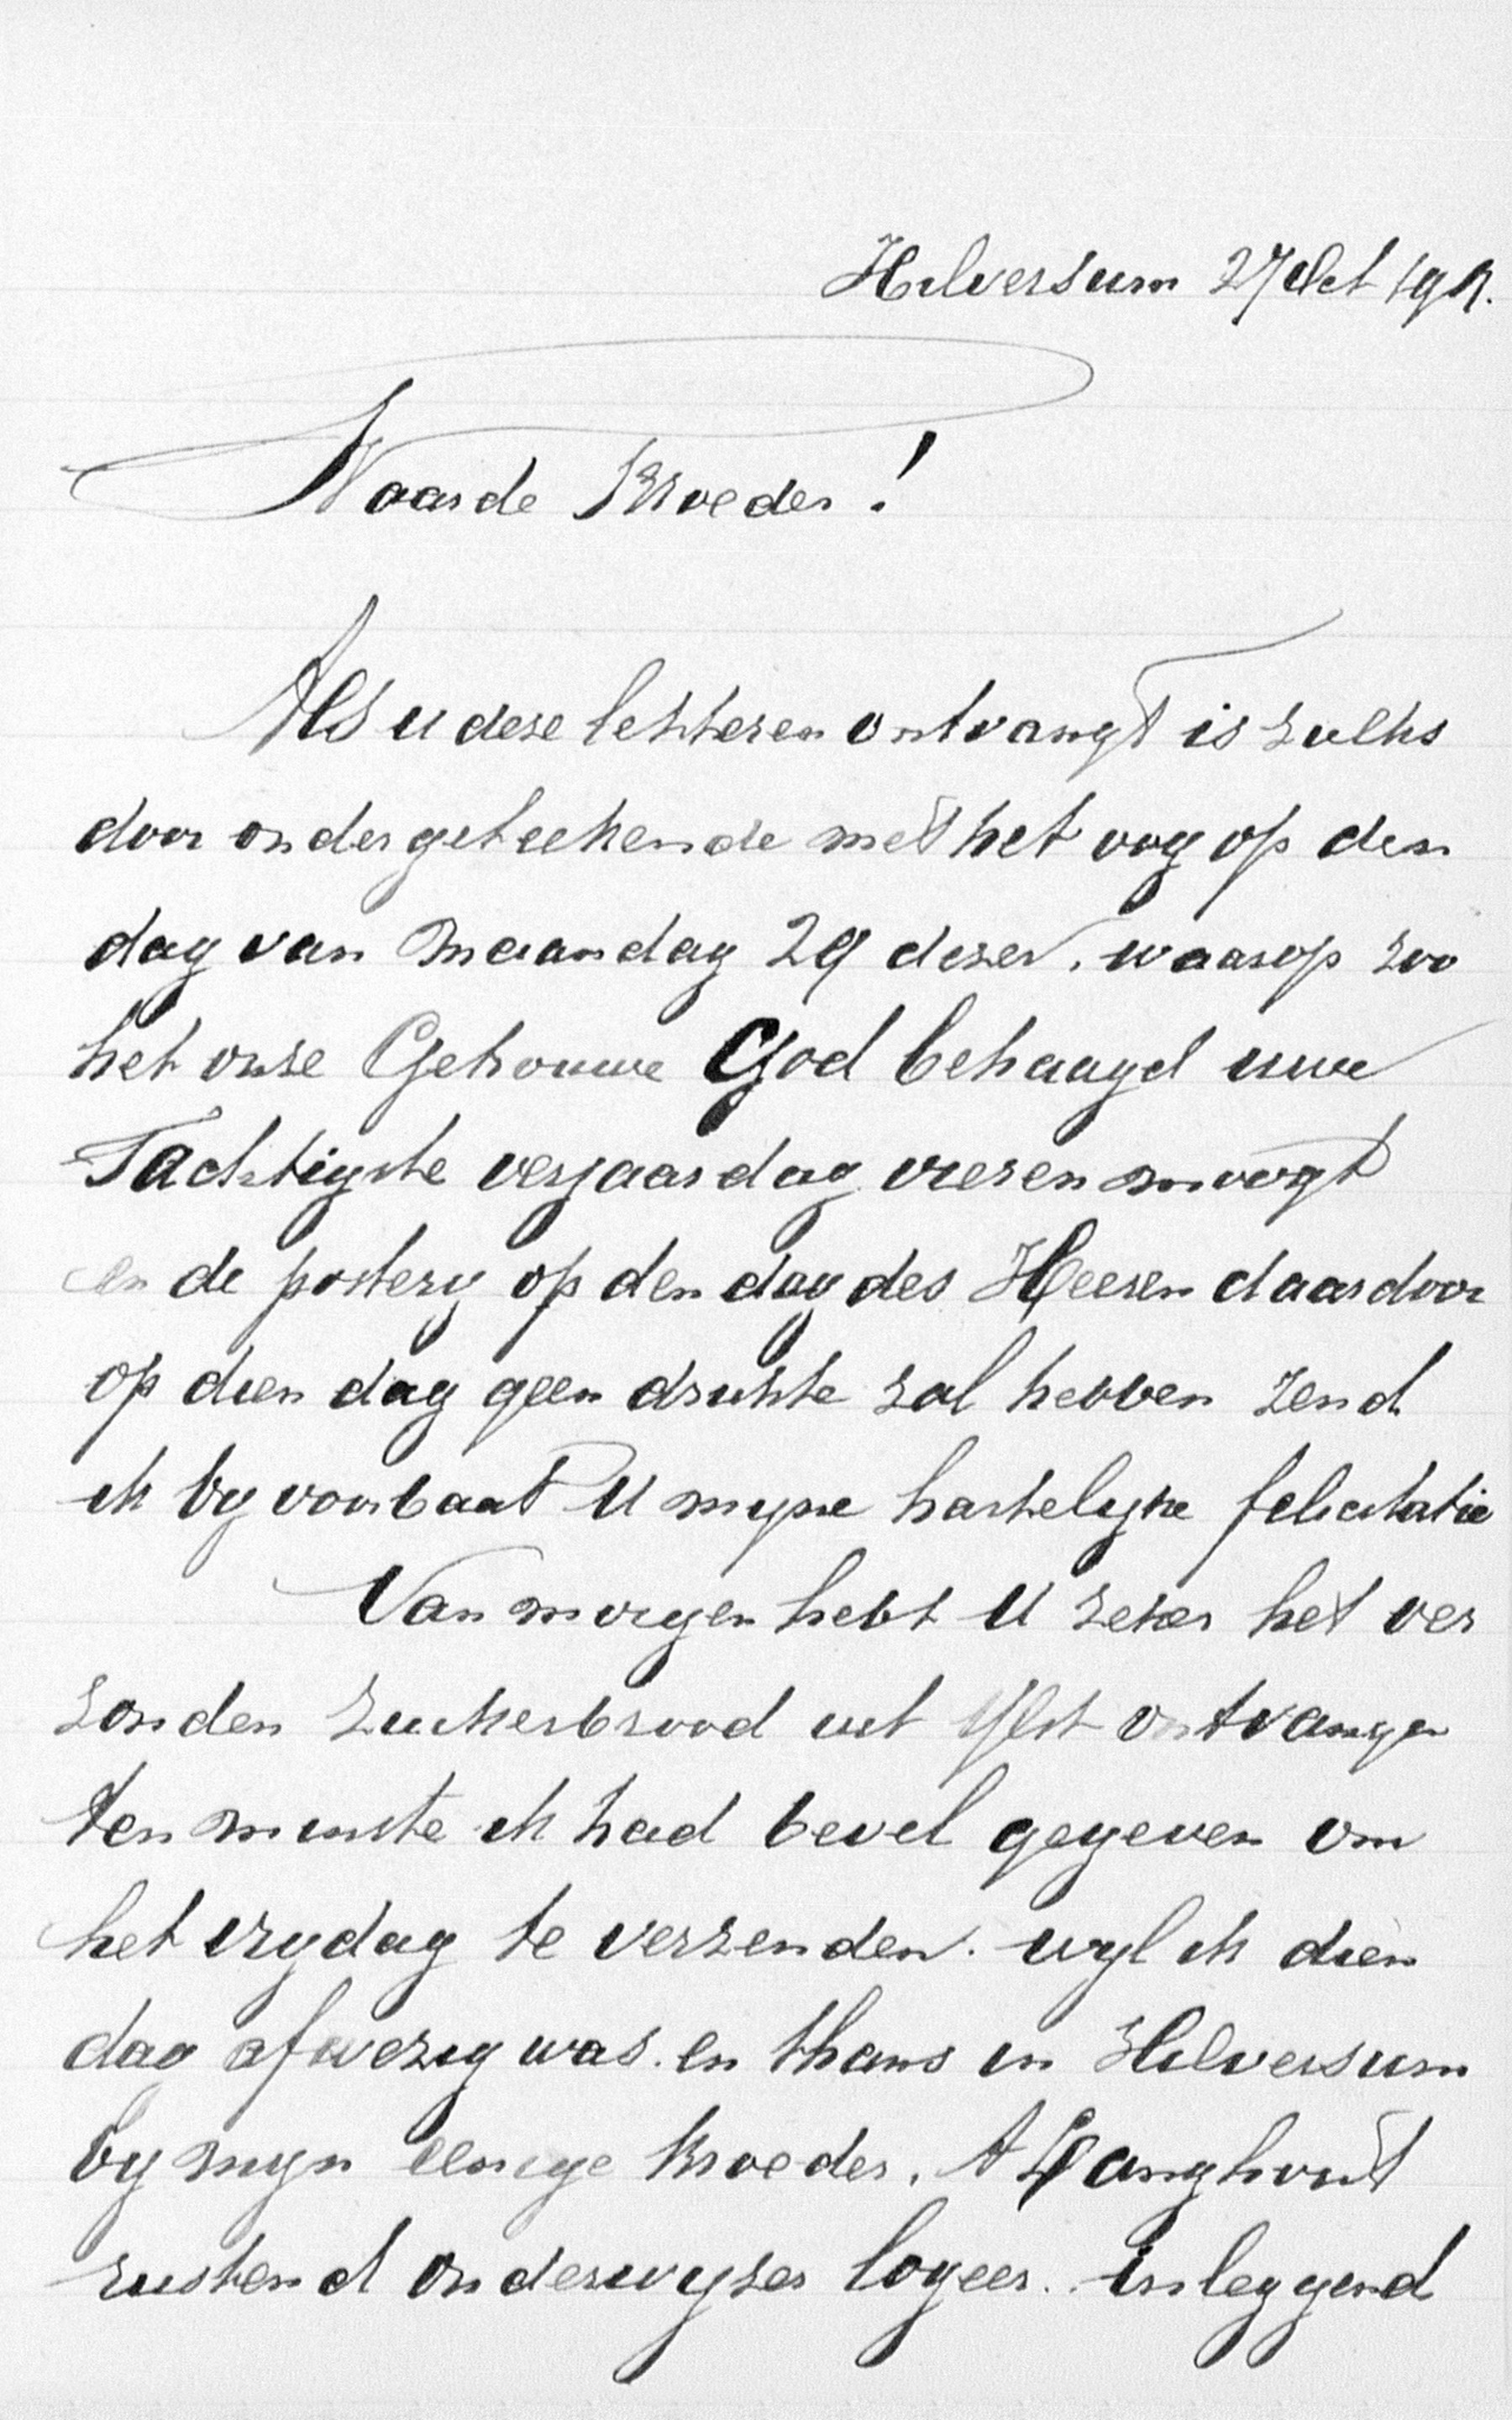 Hilversum 27 Oct 1917.
Waarde Broeder!
Als u deze letteren ontvangt is zulks
door ondergeteekende met het oog op den
dag van maandag 29 dezer. waarop zoo
het onze Getrouwe God behaagd uwe
Tachtigste verjaardag vieren moogt
en de postery op den dag des Heeren daardoor
op dien dag geen drukte zal hebben zend
ik by voorbaat U myne hartelyke felicitatie
Van morgen hebt U zeker het ver
zonden zuckerbrood uit Ylst ontvangen
ten minste ik had bevel gegeven om
het vrydag te verzenden. wyl ik dien
dag afwezig was. en thans in Hilversum
by myn eenige broeder. A Langhout
rustend onderwyzer logeer. inleggend